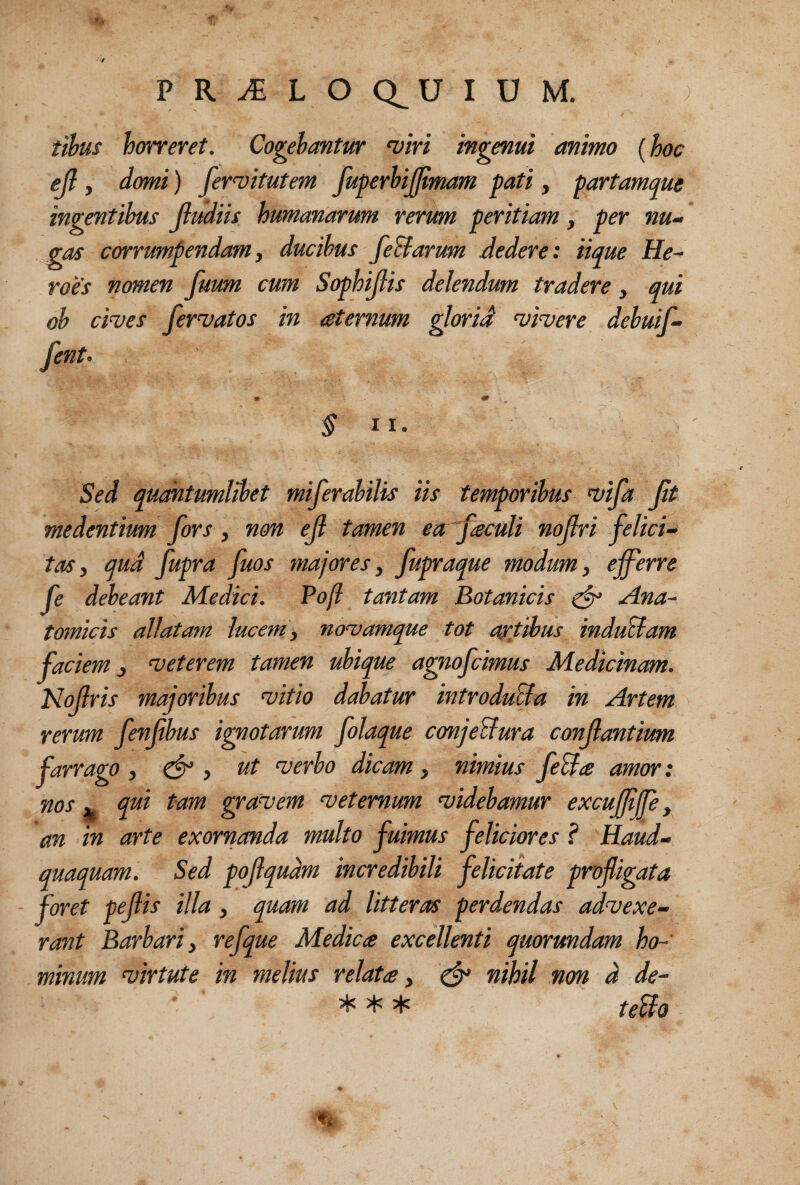 PRÆLOQUIUM.
tibus horreret. Cogebantur viri ingenui animo (hoc
eſt, domi) ſervitutem ſuperbiſſimam pati, partamque
ingentibus ſtudiis humanarum rerum peritiam, per nu-
gas corrumpendam, ducibus ſectarum dedere: iique He-
roës nomen ſuum cum Sophiſtis delendum tradere, qui
ob cives ſervatos in æternum gloriâ vivere debuiſ-
ſent.
§ II.
Sed quantumlibet miſerabilis iis temporibus viſa ſit
medentium ſors, non eſt tamen ea ſæculi noſtri felici-
tas, quâ ſupra ſuos majores, ſupraque modum, efferre
ſe debeant Medici. Poſt tantam Botanicis & Ana-
tomicis allatam lucem, novamque tot artibus inductam
faciem, veterem tamen ubique agnoſcimus Medicinam.
Noſtris majoribus vitio dabatur introducta in Artem
rerum ſenſibus ignotarum ſolaque conjectura conſtantium
farrago, &, ut verbo dicam, nimius ſectæ amor:
nos, qui tam gravem veternum videbamur excuſſiſſe,
an in arte exornanda multo fuimus feliciores? Haud-
quaquam. Sed poſtquàm incredibili felicitate profligata
foret peſtis illa, quam ad litteras perdendas advexe-
rant Barbari, reſque Medicæ excellenti quorundam ho-
minum virtute in melius relatæ, & nihil non à de-
* * * tecto